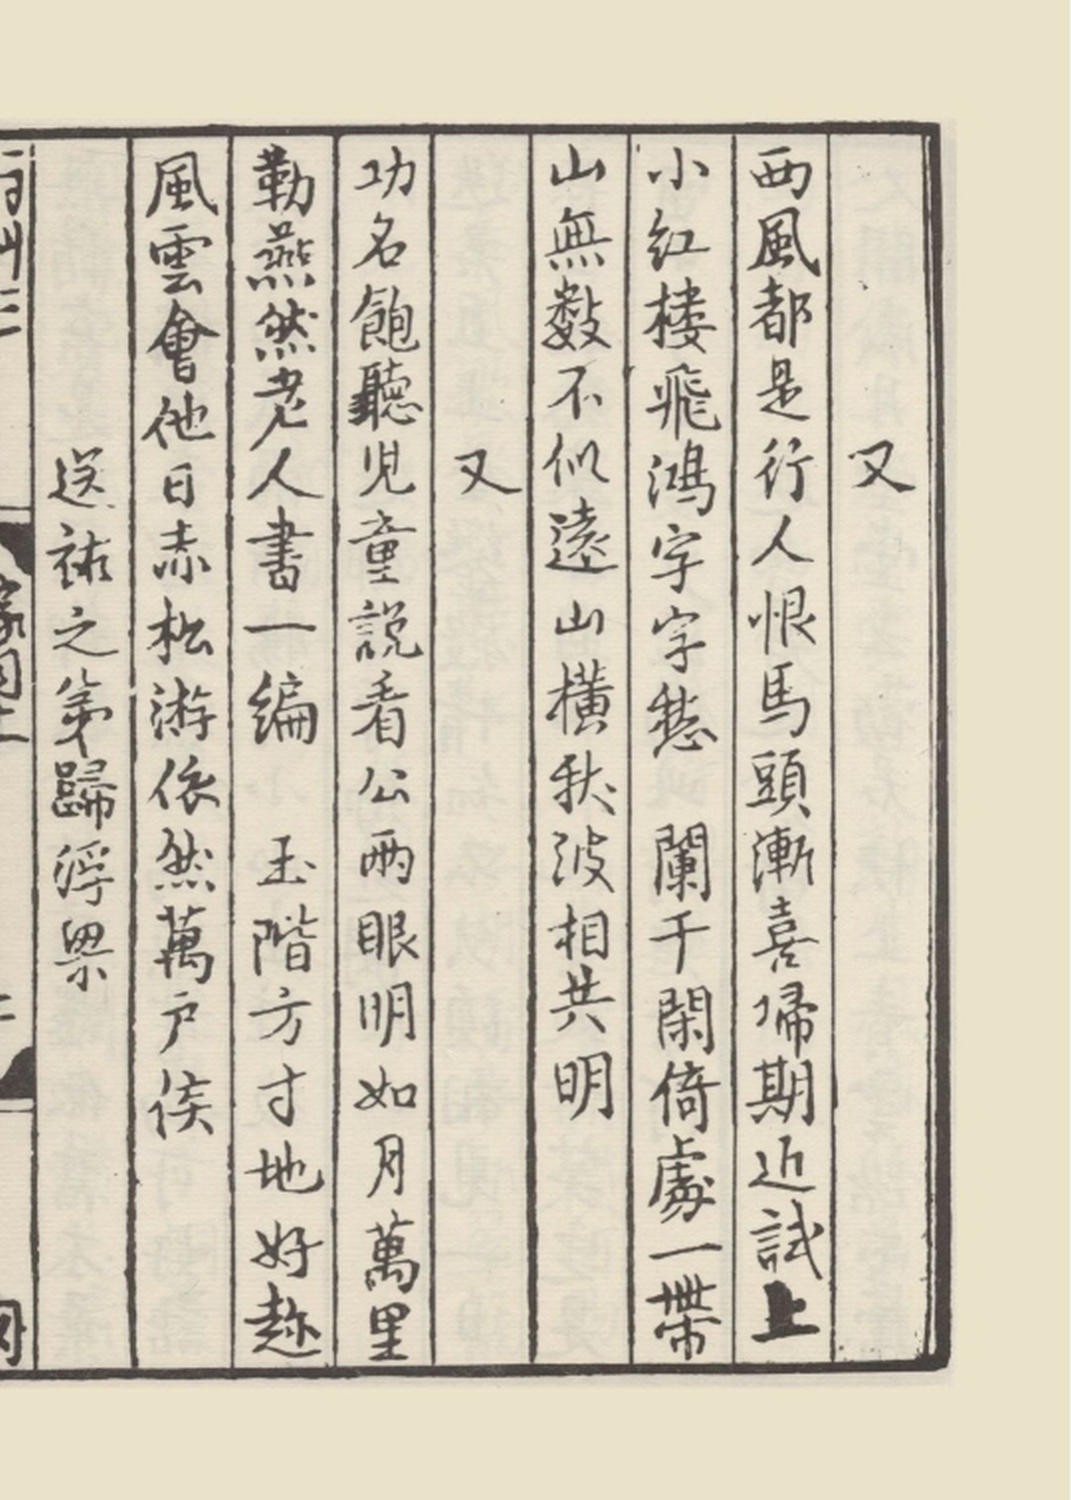 又
西風都是行人恨馬頭漸喜歸期近試上
小紅樓飛鴻字字愁　闌干閑倚處一帶
山無數不似遠山橫秋波相共明
又
功名飽聽兒童說看公兩眼明如月萬里
勒燕然老人書一編　玉階方寸地好趂
風雲會他日赤松游依然萬戶侯
送祐之弟歸浮梁